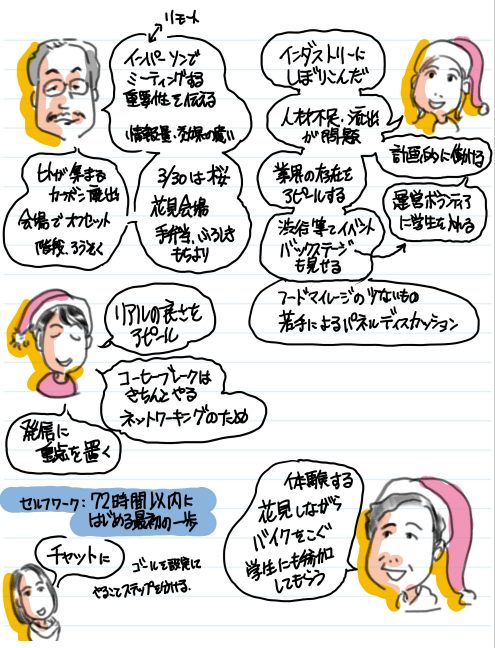 リモート
インパーソンで
ミーティングする
重要性を伝える
情報量・効果の違い
ヒトが集まる
カーボン排出
会場でオフセット
階段、ろうそく
3/30は桜
花見会場
手弁当、ふろしき
もちより
インダストリーに
しぼりこんだ
人材不足・流出
が問題
計画的に働ける
業界の存在を
アピールする
運営ボランティア
に学生を入れる
渋谷等でイベント
バックステージ
も見せる
フードマイレージの少ないもの
若手によるパネルディスカッション
リアルの良さを
アピール
コーヒーブレークは
きちんとやる
ネットワーキングのため
発信に
重点を置く
セルフワーク：72時間以内に
はじめる最初の一歩
チャットに
ゴールを明確に
やることステップを分ける.
体験する
花見しながら
バイクをこぐ
学生にも参加
してもらう